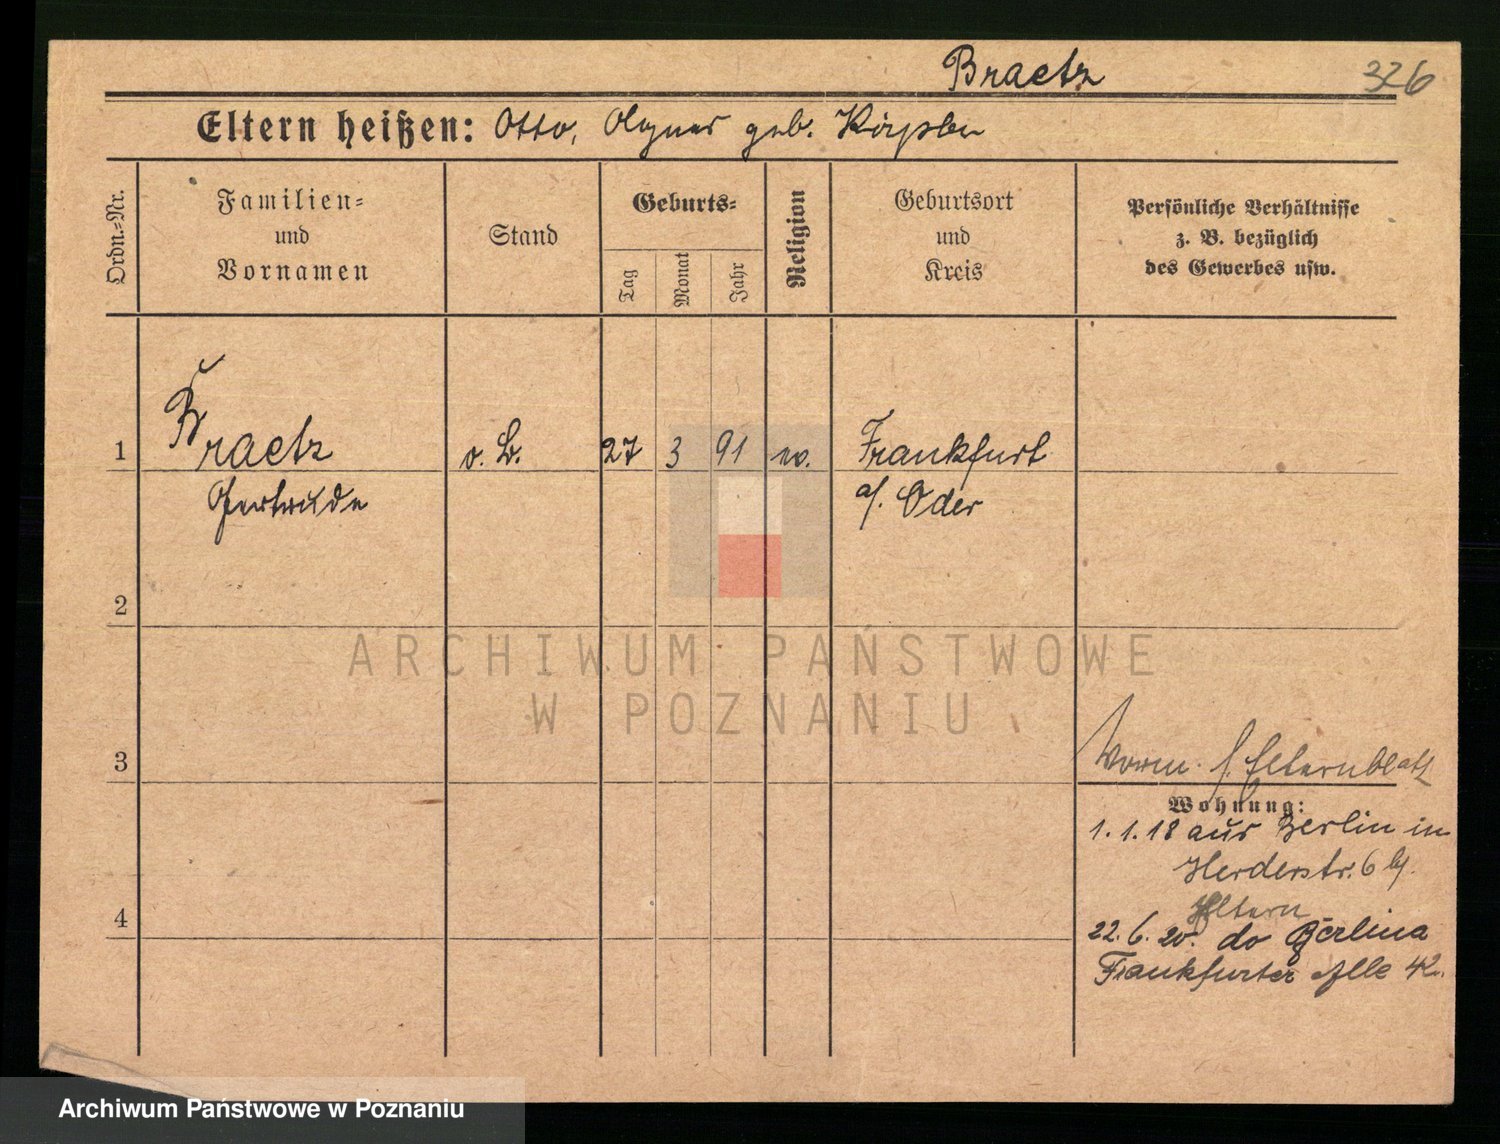 Braetz 326
Eltern heißen: Otto, Agnes geb.
Ordn.=Nr.
Familien=
und
Vornamen
Stand
Geburts=
Tag
Monat
Jahr
Religion
Geburtsort
und
Kreis
Persönliche Verhältnisse
z. B. bezüglich
des Gewerbes usw.
1 Braetz o. B. 27 3 91 ev. Frankfurt
Gertrude a/. Oder
2
ARCHIWUM PAŃSTWOWE
W POZNANIU
3 Elternblatt
Wohnung:
1.1.18 aus Berlin in
Herderstr. 6 b/.
Eltern
4
22.6.20. do Berlina
Frankfurter Alle 42.
Archiwum Państwowe w Poznaniu